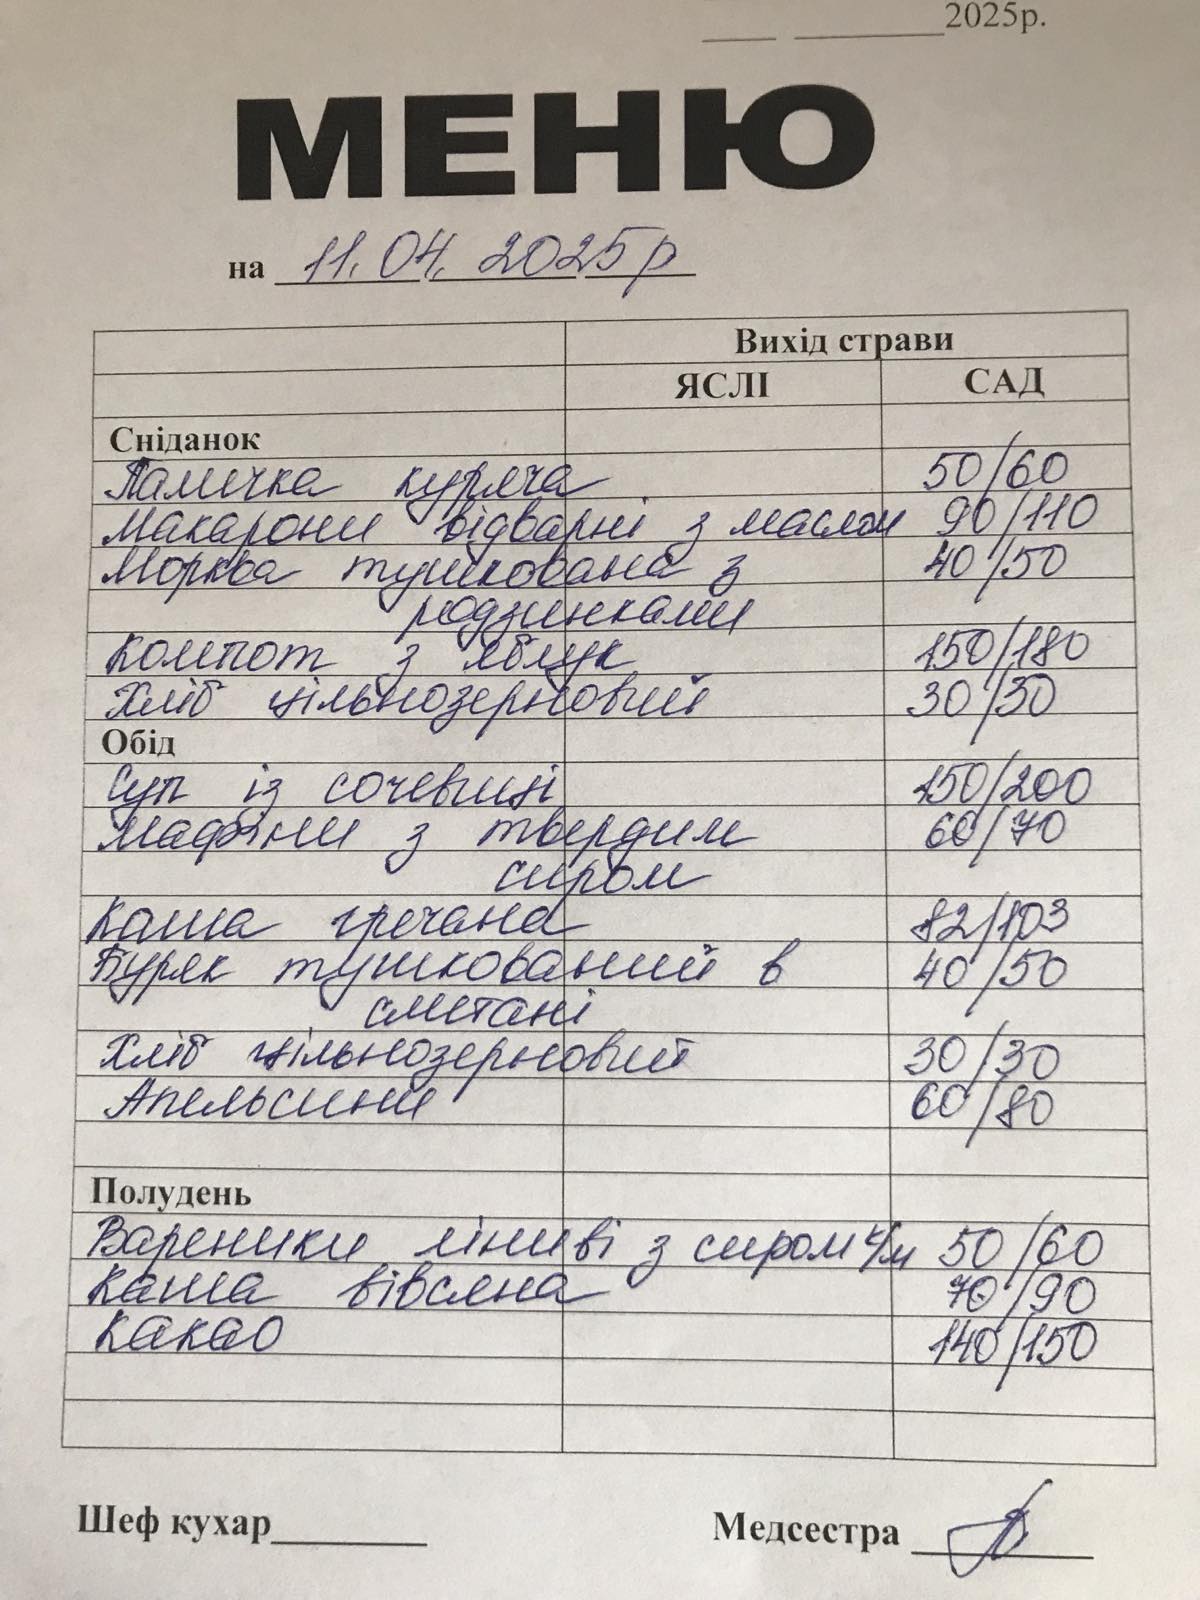 2025р.
МЕНЮ
на 11.04.2025р
Вихід страви
ЯСЛІ САД
Сніданок
Паличка куряча 50/60
Макарони відварні з маслом 90/110
Морква тушкована з 40/50
родзинками
Компот з яблук 150/180
Хліб цільнозерновий 30/30
Обід
Суп із сочевиці 150/200
Мафіни з твердим 60/70
сиром
Каша гречана 82/103
Буряк тушкований в 40/50
сметані
Хліб цільнозерновий 30/30
Апельсини 60/80
Полудень
Вареники ліниві з сиром к/м 50/60
Каша вівсяна 70/90
Какао 140/150
Шеф кухар Медсестра